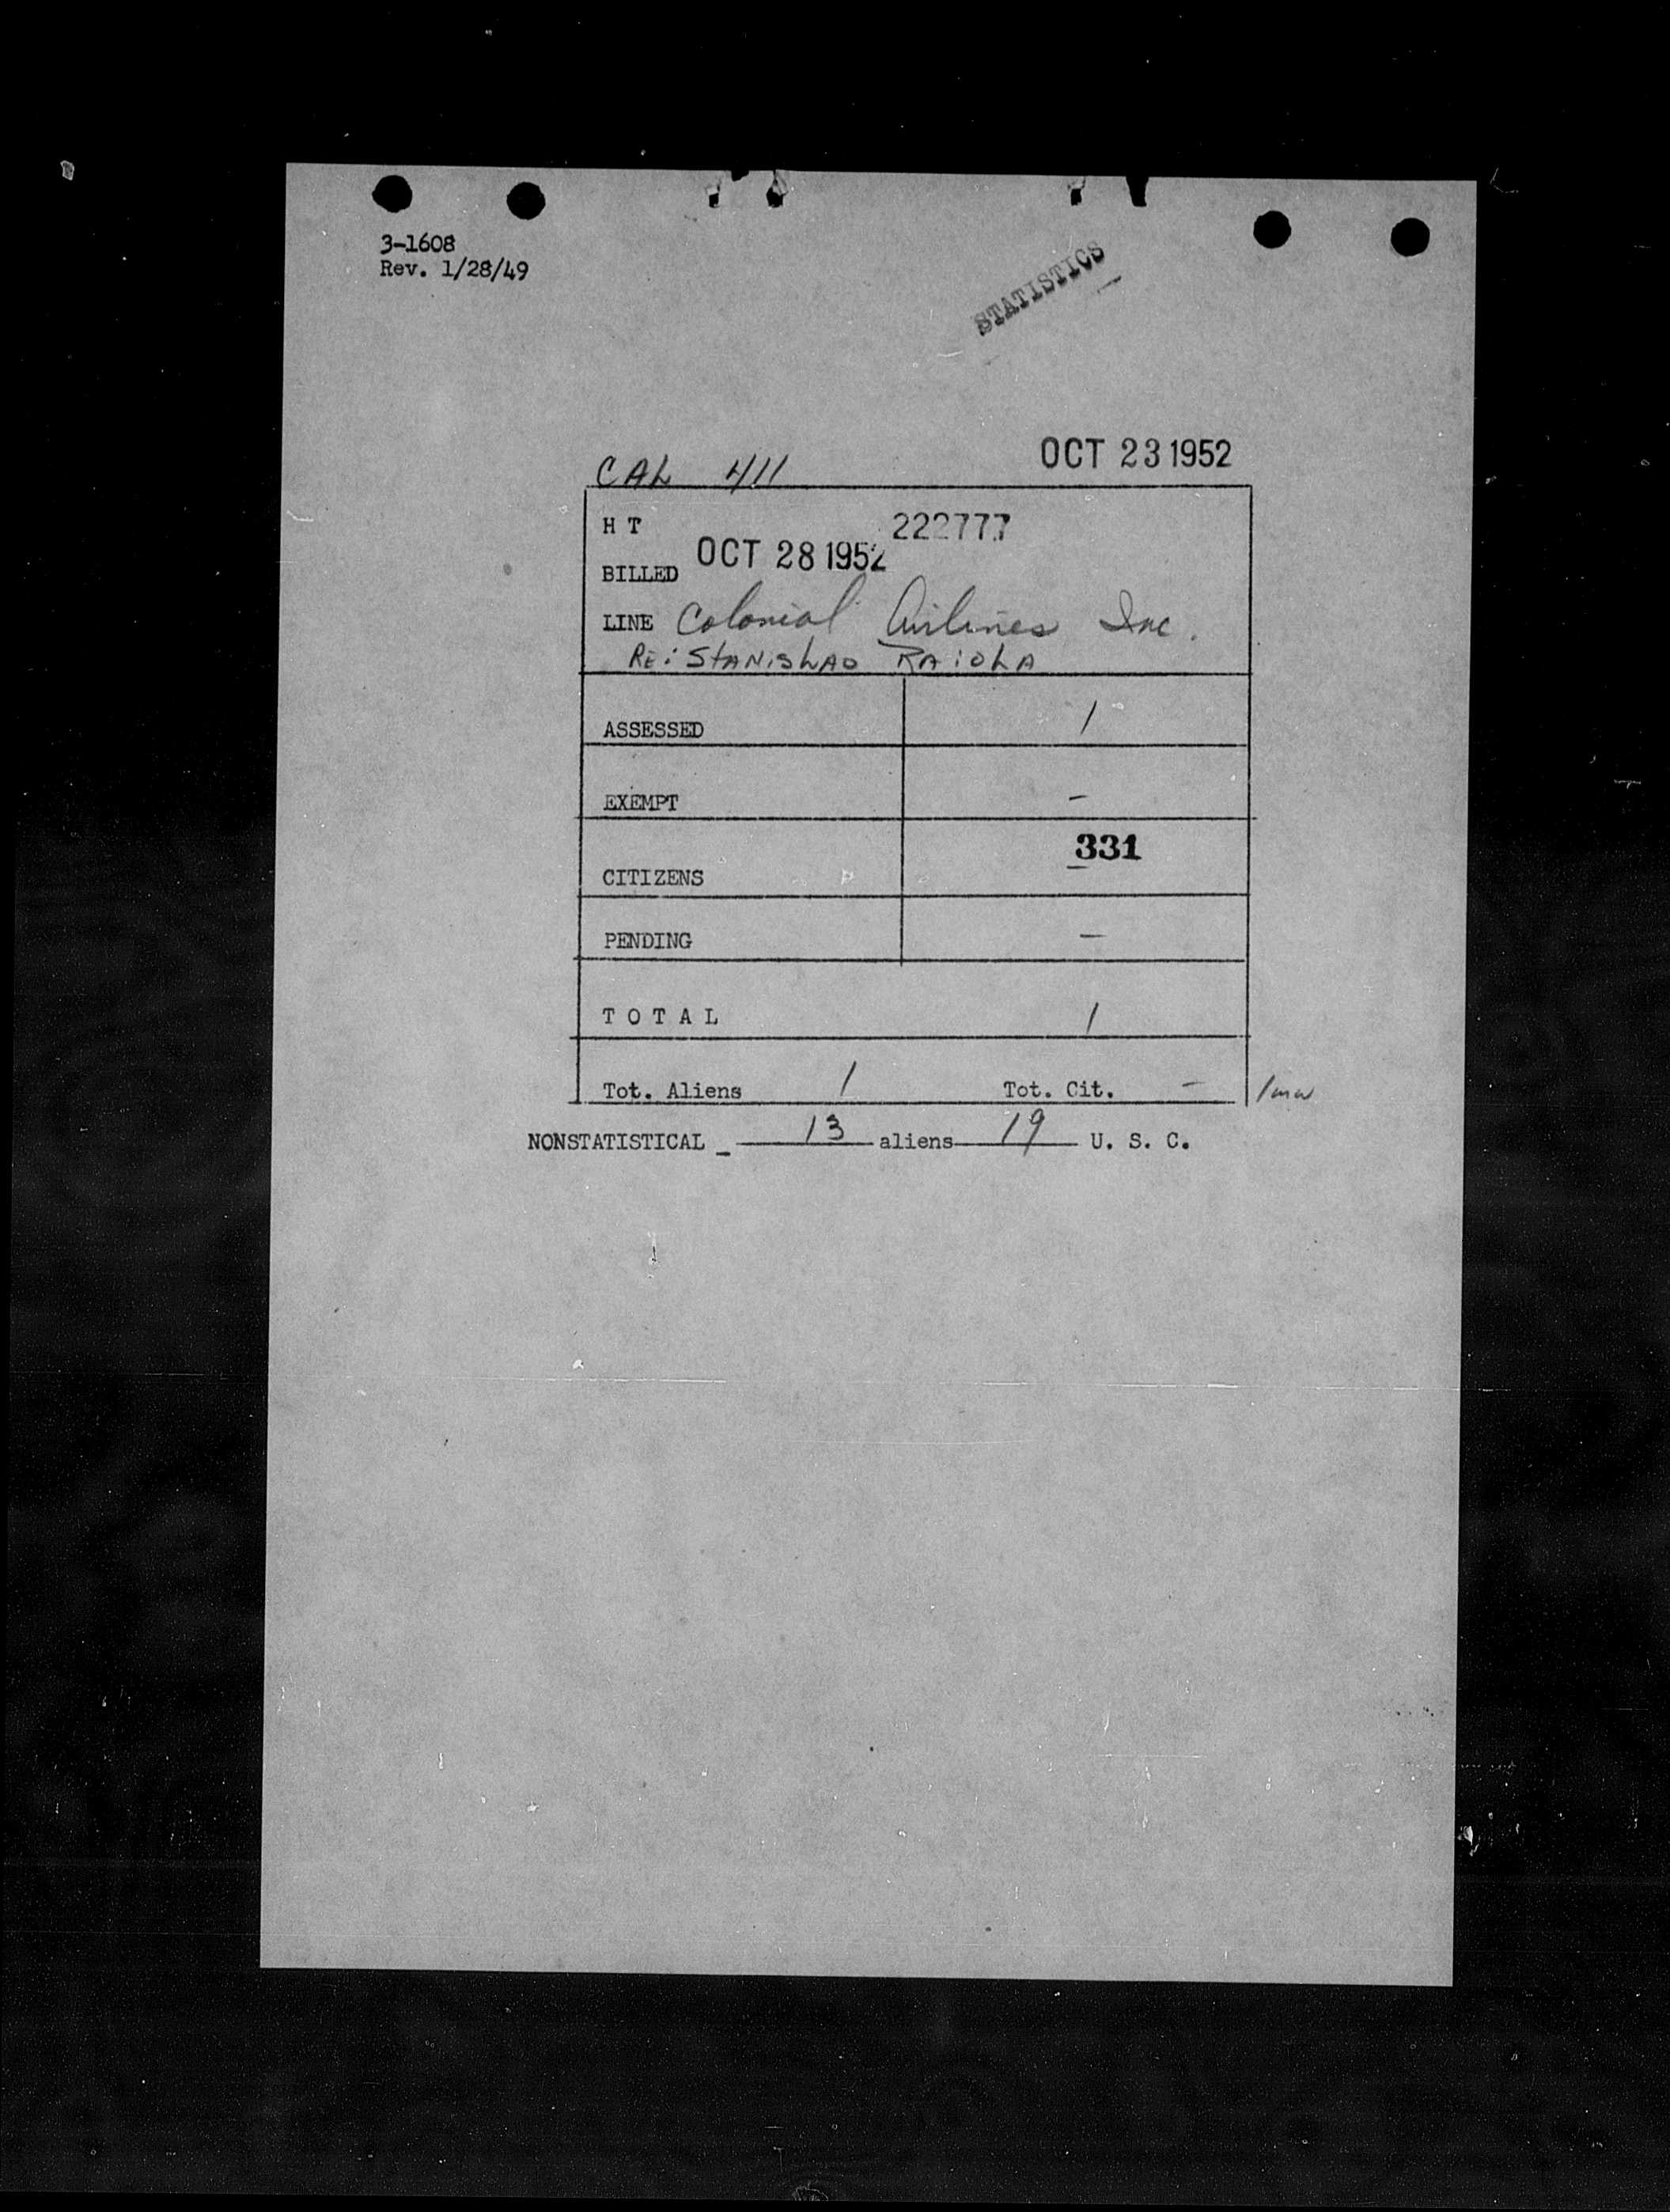 3-1608
Rev. 1/28/49
STATISTICS
CAL 411 OCT 23 1952
H T 222777
BILLED OCT 28 1952
LINE Colonial Airlines Inc.
RE: STANISLAO RAIOLA
ASSESSED 1
EXEMPT -
331
CITIZENS -
PENDING -
T O T A L 1
Tot. Aliens 1 Tot. Cit. -
NONSTATISTICAL _ 13 aliens 19 U. S. C.